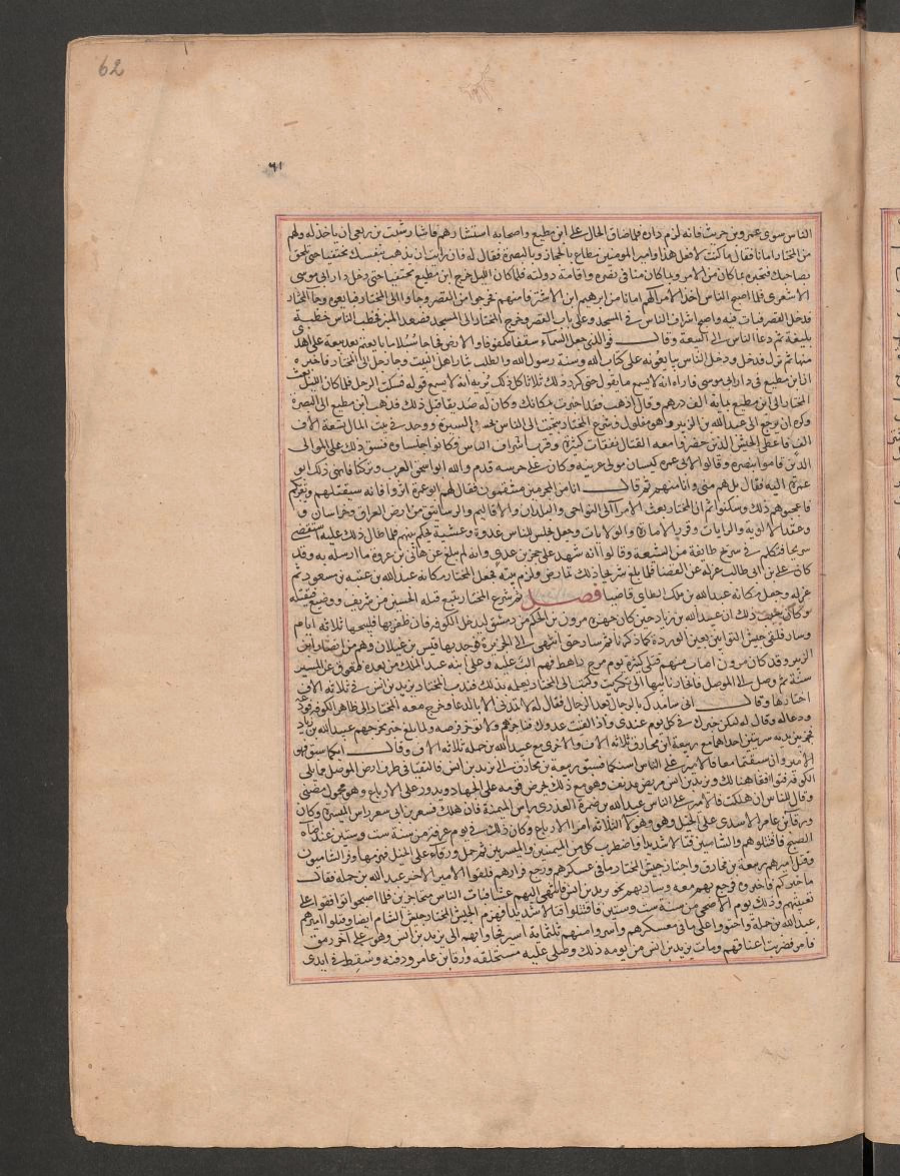 62
٦١
الناس سوى عمرو بن حريث فانه لزم داره فلما ضاق الحال على ابن مطيع واصحابه استشارهم فاشار شبث بن ربعي ان ياخذ له ولهم
من المختار امانا فقال ما كنت لافعل هذا وامير المومنين مطاع بالحجاز وبالبصرة فقال له فان رايت ان تذهب بنفسك مختفيا حتى تلحق
بصاحبك فتخبره بما كان من الامر وبما كان منا في نصره واقامة دولته فلما كان الليل خرج ابن مطيع مختفيا حتى دخل دار ابي موسى
الاشعري فلما اصبح الناس اخذ الامرا لهم امانا من ابرهيم ابن الاشتر فامنهم فخرجوا من القصر وجاوا الى المختار فبايعوه وجا المختار
فدخل القصر فبات فيه واصبح اشراف الناس في المسجد وعلى باب القصر وخرج المختار الى المسجد فصعد المنبر فخطب الناس خطبة
بليغة ثم دعا الناس الى البيعة وقال فوالذي جعل السماء سقفا مكفوفا والارض فجاجا سبلا ما بايعتم بعد بيعة علي اهدى
منها ثم نزل فدخل ودخل الناس يبايعونه على كتاب الله وسنة رسول الله والطلب بثار اهل البيت وجا رجل الى المختار فاخبره
ان ابن مطيع في دار ابي موسى فاراه انه لا يسمع ما يقول حتى كرر ذلك ثلاثا كل ذلك يريه انه لا يسمع قوله فسكت الرجل فلما كان الليل بعث
المختار الى ابن مطيع بماية الف درهم وقال اذهب فقد اخبرت بمكانك وكان له صديقا قبل ذلك فذهب ابن مطيع الى البصرة
وكره ان يرجع الى عبد الله بن الزبير وهو مغلول وشرع المختار يتحبب الى الناس بحسن السيرة ووجد في بيت المال تسعة الاف
الف فاعطى الجيش الذين حضروا معه القتال نفقات كثيرة وقرب اشراف الناس وكانوا جلساوه فسق ذلك على الموالي
الذين قاموا بنصره وقالوا لابي عمرة كيسان مولى عرينه وكان على حرسه قدم والله ابو اسحق العرب وتركنا فانهى ذلك ابو
عمرة اليه فقال بل هم مني وانا منهم ثم قال انا من المجرمين منتقمون فقال لهم ابو عمرة ابشروا فانه سيقتلهم ويقربكم
فاعجبهم ذلك وسكتوا ثم ان المختار بعث الامرا الى النواحي والبلدان والاقاليم والرساتيق من ارض العراق وخراسان
وعقد الالوية والرايات وقرر الامارة والولايات وجعل يجلس للناس غدوة وعشية يحكم بينهم فلما طال ذلك عليه استقضى
شريحا فتكلم في شريح طائفة من الشيعة وقالوا انه شهد على حجر بن عدي وانه لم يبلغ عن هاني بن عروة ما ارسله به وقد
كان علي بن ابي طالب عزله عن القضا فلما بلغ شريحا ذلك تمارض ولزم بيته فجعل المختار مكانه عبد الله بن عتبه بن مسعود ثم
عزله وجعل مكانه عبد الله بن ملك الطاي قاضيا فصل ثم شرع المختار يتبع قتلة الحسين من شريف ووضيع فيقتله
وكان سبب ذلك ان عبيد الله بن زياد حين كان جهزه مرون بن الحكم من دمشق ليدخل الكوفه فان ظفر بها فليبحها ثلاثه ايام
وسار فلقي جيش التوابين بعين الورده كما ذكرنا ثم سار حتى انتهى الى الجزيرة فوجد بها قيس بن غيلان وهم من انصار ابن
الزبير وقد كان مرون اصاب منهم قتلى كثيرة يوم مرج راهط فهم الب عليه وعلى ابنه عبد الملك من بعده فعوق عن المسير
سنة ثم وصل الى الموصل فانحاز نائبها الى تكريت وكتب الى المختار يعلمه بذلك فندب المختار يزيد بن انس في ثلاثة الاف
اختارها وقال اني سامدك بالرجال بعد الرجال فقال له لا تمدني الا بالدعا وخرج معه المختار الى ظاهر الكوفه فودعه
ودعا له وقال له ليكن خبرك في كل يوم عندي واذا لقيت عدوك فناجزهم ولا توخر فرصه ولما بلغ خبر مخرجهم عبيد الله بن زياد
جهز بين يديه سريتين احداهما مع ربيعة ابن مخارق ثلثه الاف والاخرى مع عبد الله بن حمله ثلاثه الاف وقال ايكما سبق فهو
الامير وان سبقتما معا فالامير على الناس اسنكما فسبق ربيعة بن مخارق الى يزيد بن انس فالتقيا في طرف ارض الموصل مما يلي
الكوفه فتواقفا هنالك ويزيد بن انس مريض مدنف وهو مع ذلك يحرض قومه على الجهاد ويدور على الارباع وهو محمول مضنى
وقال للناس ان هلكت فالامير على الناس عبد الله بن ضمرة العذري راس الميمنة فان هلك فسعر بن ابي سعر راس الميسرة وكان
ورقا بن عامر الاسدي على الخيل وهو وهولا الثلاثه امرا الارباع وكان ذلك في يوم عرفه من سنة ست وستين عند اضاة
الصبح فاقتتلوا هم والشاميين قتالا شديدا واضطرب كل من الميمنتين والميسرتين ثم حمل ورقاء على الخيل فهزمها وفر الشاميون
وقتل اميرهم ربيعة بن مخارق واحتاز جيش المختار ما في عسكرهم ورجع فرارهم فلقوا الامير الاخر عبد الله بن حمله فقال
ما خبركم فاخبروه فرجع بهم معه وسار بهم نحو يزيد بن انس فانتهى اليهم عشا فبات الناس متحاجزين فلما اصبحوا تواقفوا على
تعبيتهم وذلك يوم الاضحى من سنة ست وستين فاقتتلوا قتالا شديدا فهزم الجيش المختار جيش الشام ايضا وقتلوا اميرهم
عبد الله بن حملة واحتووا على ما في معسكرهم واسروا منهم ثلثماية اسير فجاوا بهم الى يزيد بن انس وهو على آخر رمق
فامر فضربت اعناقهم ومات يزيد بن انس من يومه ذلك وصلى عليه مستخلفه ورقا بن عامر ودفنه وسقط في ايدي